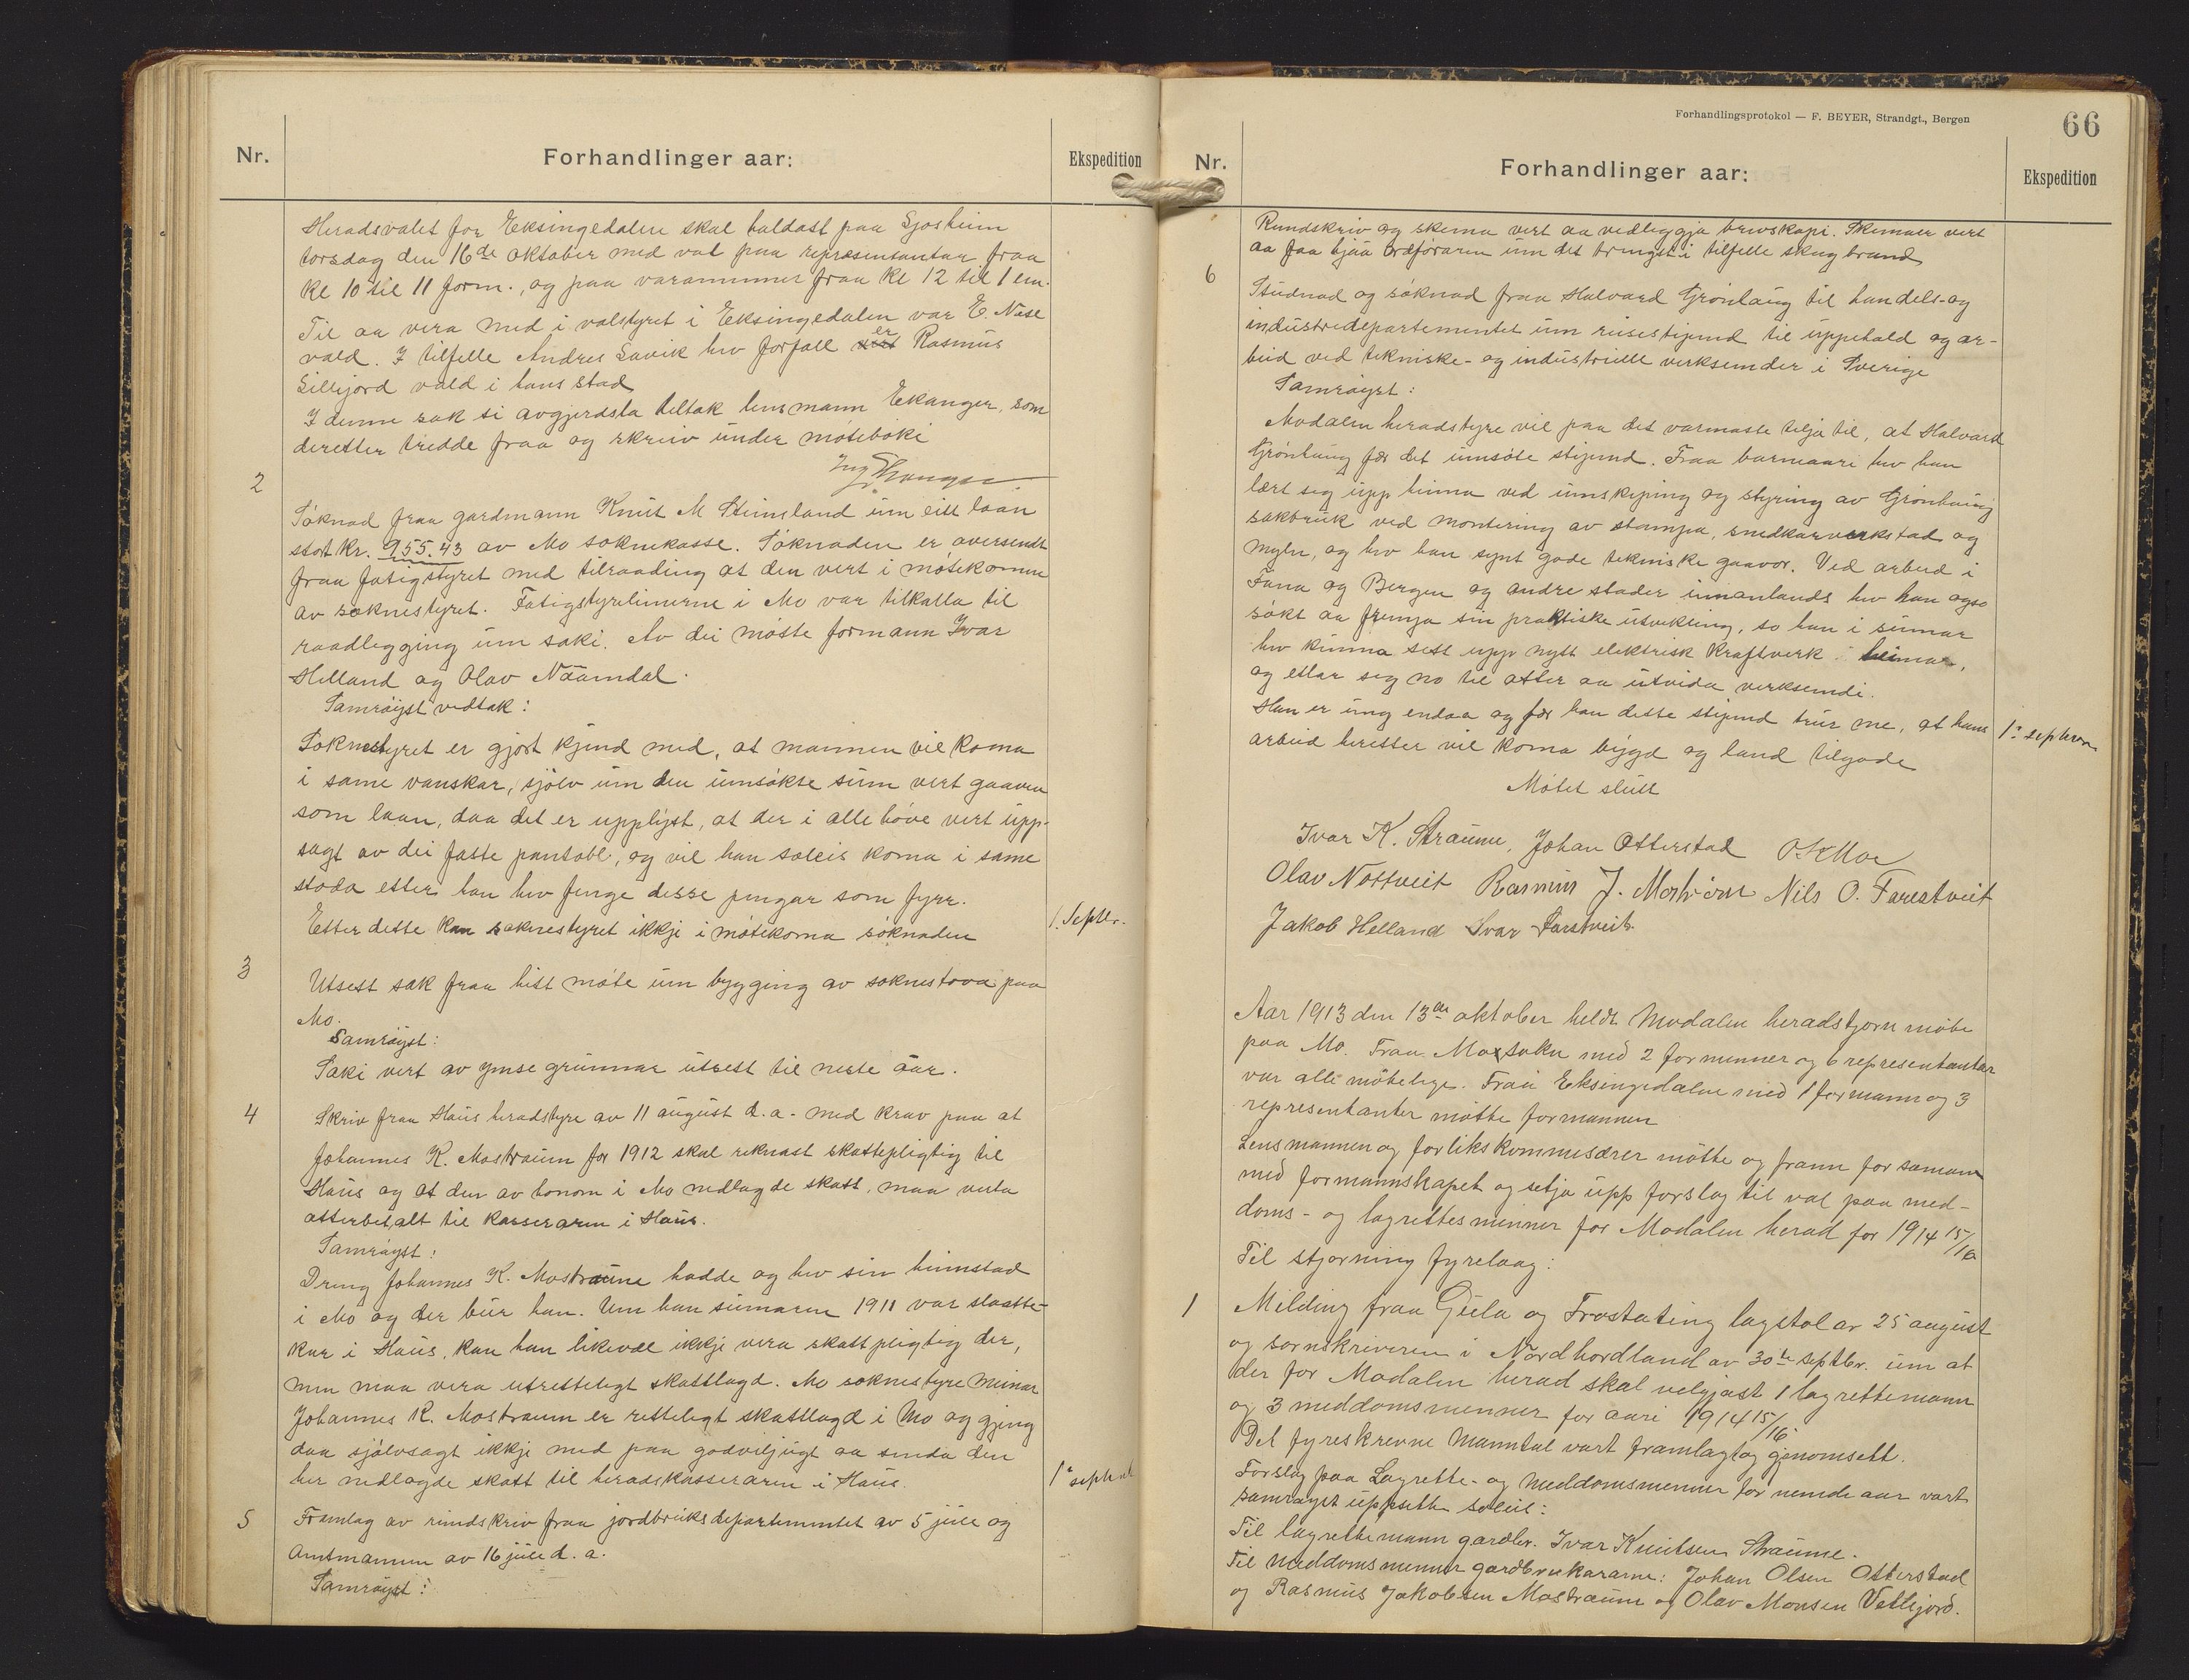 Nr.
Forhandlinger aar:
Ekspedition
Heradsvalet for Eksingedalen skal haldast paa Sjosheim
torsdag den 16de oktober med val paa representantar fraa
kl 10 til 11 form., og paa varamenner fraa kl 12 til 1 em.
Til aa vera med i valstyret i Eksingedalen var E. Nese
vald. I tilfelle Andres Lavik hev forfall er Rasmus
Lillejord vald i hans stad
I denne sak si avgjerdsla deltok lensmann Ekanger, som
deretter tredde fraa og skreiv under møteboki
Ekanger
2
Søknad fraa gardmann Knut M Steinsland um eitt laan
stort kr. 955.43 av Mo soknekasse. Søknaden er oversendt
fraa fatigstyret med tilraading at den vert i møtekomen
av soknestyret. Fatigstyrelimerne i Mo var tilkalla til
raadlegging um saki. Av dei møtte formann Ivar
Helland og Olav Nåamdal.
Samrøyst vedtak:
Soknestyret er gjort kjend med, at mannen vil koma
i same vanskar, sjølv um den umsøkte sum vert gaaven
som laan, daa det er upplyst, at der i alle høve vert upp-
sagt av dei faste pantobl., og vil han soleis koma i same
stoda etter han hev fenge desse pengar som fyrr.
Etter dette kan soknestyret ikkje i møtekoma søknaden
1. Septbr.
3
Utsett sak fraa hitt møte um bygging av soknestova paa
Mo.
Samrøyst:
Saki vert av ymse grunnar utsett til neste aar.
4
Skriv fraa Haus heradstyre av 11 august d.a. med krav paa at
Johannes K. Mostraum for 1912 skal reknast skattepligtig til
Haus og at den av honom i Mo nedlagde skatt, maa verta
atterbetalt til kasseraren i Haus.
Samrøyst:
Dreng Johannes K. Mostraum hadde og hev sin heimstad
i Mo og der bur han. Um han sumaren 1911 var slaatte-
kar i Haus, kan han likevæl ikkje vera skattpligtig der,
men maa vera urettelegt skattlagd. Mo soknestyre meinar
Johannes K. Mostraum er rettelegt skattlagd i Mo og gjeng
daa sjølvsagt ikkje med paa godviljugt aa senda den
her nedlagde skatt til heradskasseraren i Haus.
5
Framlag av rundskriv fraa jordbruksdepartementet av 5 jule og
Amtmannen av 16 jule d.a.
Samrøyst:
Forhandlingsprotokol — F. BEYER, Strandgt., Bergen
66
Nr.
Forhandlinger aar:
Ekspedition
Rundskriv og skema vert aa vedleggja brevskapi. Skemaer vert
aa faa hjaa ordføraren um det trengst i tilfelle skogbrand
6
Studnad og søknad fraa Halvard Grønhaug til handels- og
industridepartementet um reisestipend til uppehald og ar-
beid ved tekniske- og industrielle verksemder i Sverige
Samrøyst:
Modalen heradstyre vil paa det varmaste telja til, at Halvard
Grønhaug fær det umsøte stipend. Fraa barneaari hev han
lært seg upp heima ved umskiping og styring av Grønhaug
sakbruk ved montering av stampa, snedkarverkstad og
myln, og hev han synt gode tekniske gaavor. Ved arbeid i
Fana og Bergen og andre stader innanlands hev han ogso
søkt aa fremja sin praktiske utvikling, so han i sumar
hev kunna sett upp nytt elektrisk kraftverk heima,
og etlar seg no til atter aa utvida verksemdi.
Han er ung endaa og fær han dette stipend trur me, at hans
arbeid heretter vil koma bygd og land tilgode
Møtet slutt
Ivar K. Straume, Johan Otterstad O. K Moe
Olav Nottveit Rasmus J. Mostraum Nils O. Farestveit
Jakob Helland Ivar Farestveit
Aar 1913 den 13de oktober heldt Modalen heradstjorn møte
paa Mo. Fraa Mo sokn med 2 formenner og 6 representantar
var alle møtelege. Fraa Eksingedalen med 1 formann og 3
representanter møtte formannen
Lensmannen og forlikskommisærer møtte og fram for saman
med formannskapet og setja upp forslag til val paa med-
doms- og lagrettesmenner for Modalen herad for 1914 15/16
Til stjorning fyrelaag:
1
Melding fraa Gula og Frostating lagstol av 25 august
og sornskriveren i Nordhordland av 30te septbr. um at
der for Modalen herad skal velgjast 1 lagrettemann
og 3 meddomsmenner for aari 1914 15/16
Det fyreskrevne Manntal vart framlagt og gjenomsett.
Forslag paa Lagrette- og Meddomsmenner for nemde aar vart
samrøyst uppsette soleis:
Til lagrettemann gardbr. Ivar Knutsen Straume.
Til Meddomsmenner gardbrukararne: Johan Olsen Otterstad
og Rasmus Jakobsen Mostraum og Olav Monsen Vetlejord.